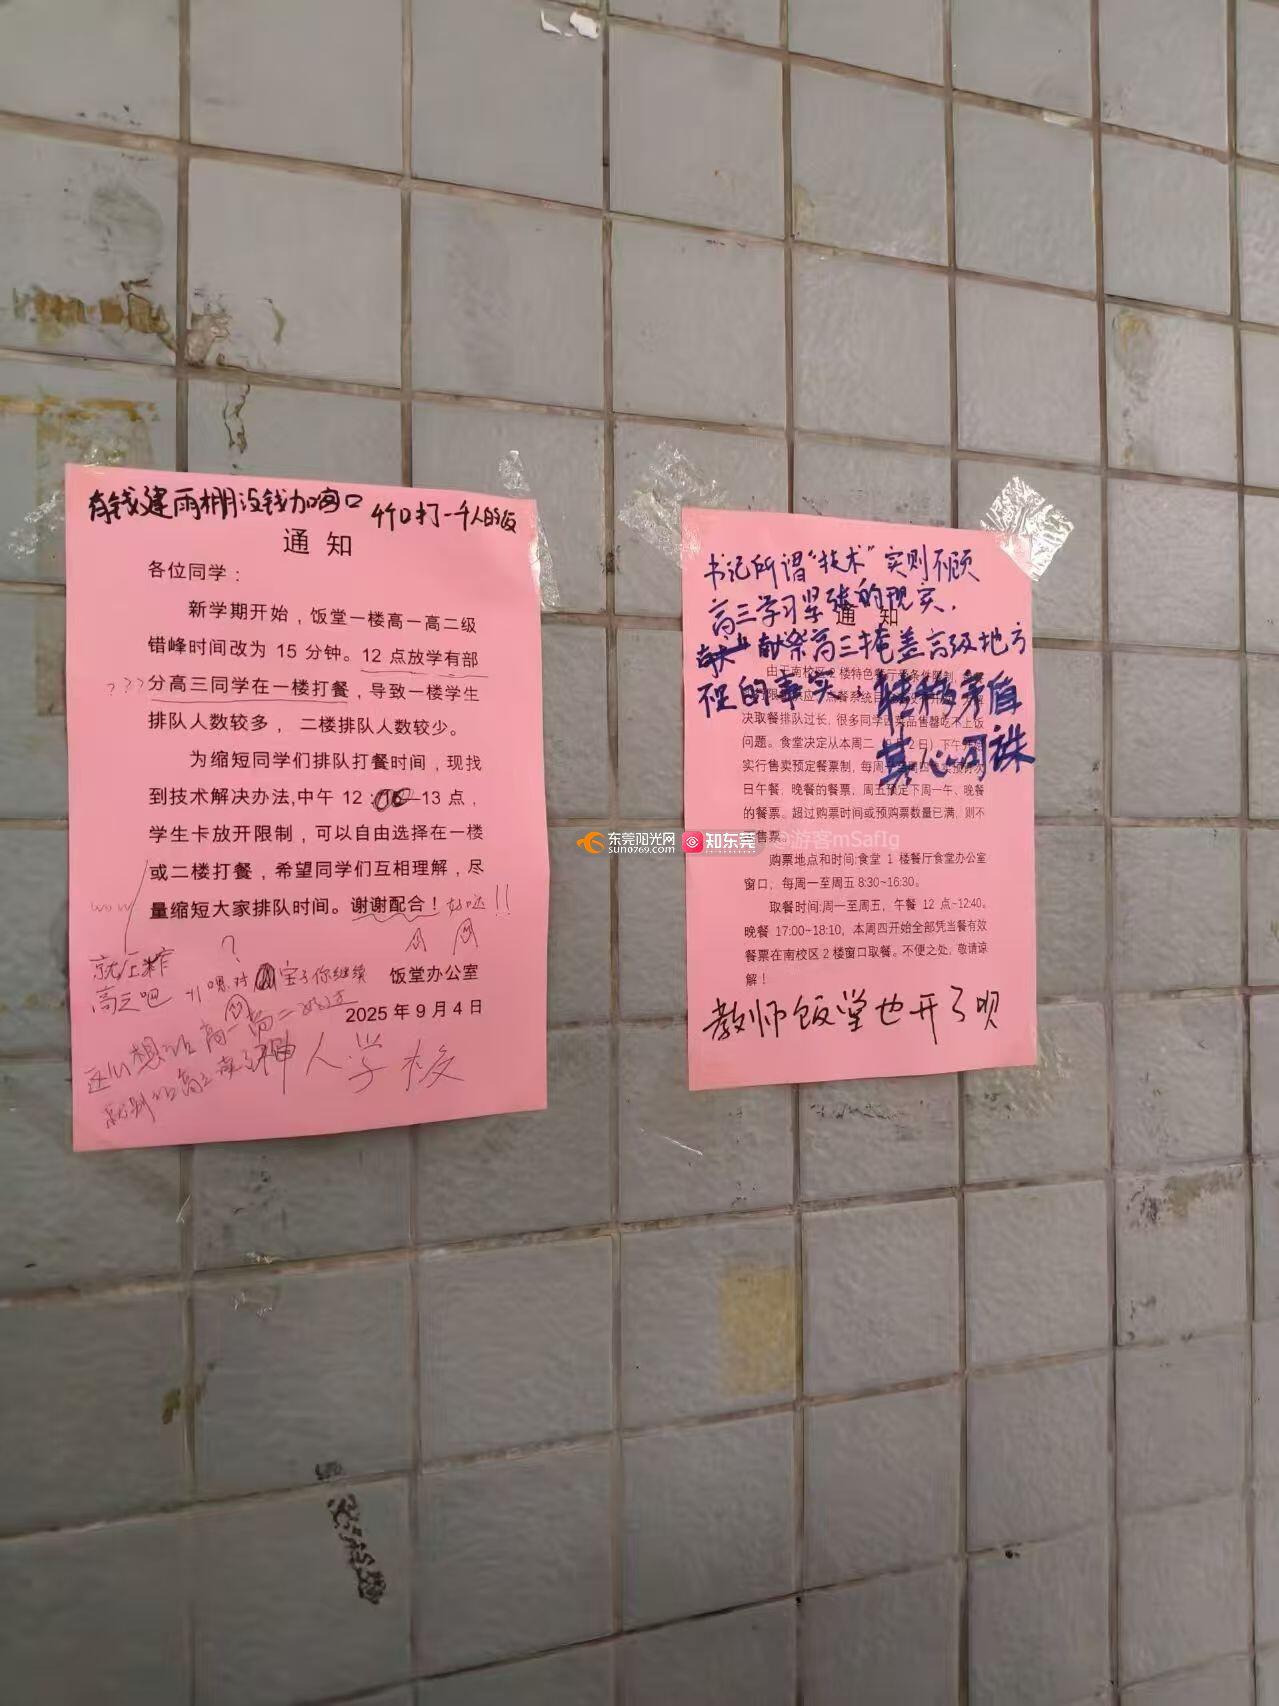 有钱建雨棚没钱加窗口 4个口打一千人的饭
通知
各位同学：
新学期开始，饭堂一楼高一高二级
错峰时间改为 15 分钟。12 点放学有部
???
分高三同学在一楼打餐，导致一楼学生
排队人数较多， 二楼排队人数较少。
为缩短同学们排队打餐时间，现找
到技术解决办法,中午 12：00—13 点，
学生卡放开限制，可以自由选择在一楼
或二楼打餐，希望同学们互相理解，尽
wow
量缩短大家排队时间。谢谢配合！好哒!!
就压榨
高三吧
？
嘿对 宝子你继续
饭堂办公室
2025 年 9 月 4 日
神人学校
书记所谓“技术”实则不顾
高三学习紧张的现实，
献祭高三掩盖高级地方
不足的事实，转移矛盾
其心可诛
通知
由于南校区 2 楼特色餐厅
决取餐排队过长，很多同学因菜品售罄吃不上饭
问题。食堂决定从本周二（9月2日）下午开始
实行售卖预定餐票制，每周一至周四售卖预订次
日午餐，晚餐的餐票，周五预定下周一午、晚餐
的餐票。超过购票时间或预购票数量已满，则不
售票。
购票地点和时间:食堂 1 楼餐厅食堂办公室
窗口，每周一至周五 8:30~16:30。
取餐时间:周一至周五，午餐 12 点~12:40。
晚餐 17:00~18:10，本周四开始全部凭当餐有效
餐票在南校区 2 楼窗口取餐。不便之处，敬请谅
解！
教师饭堂也开了呗
东莞阳光网
sun0769.com
知东莞
@游客mSafIg